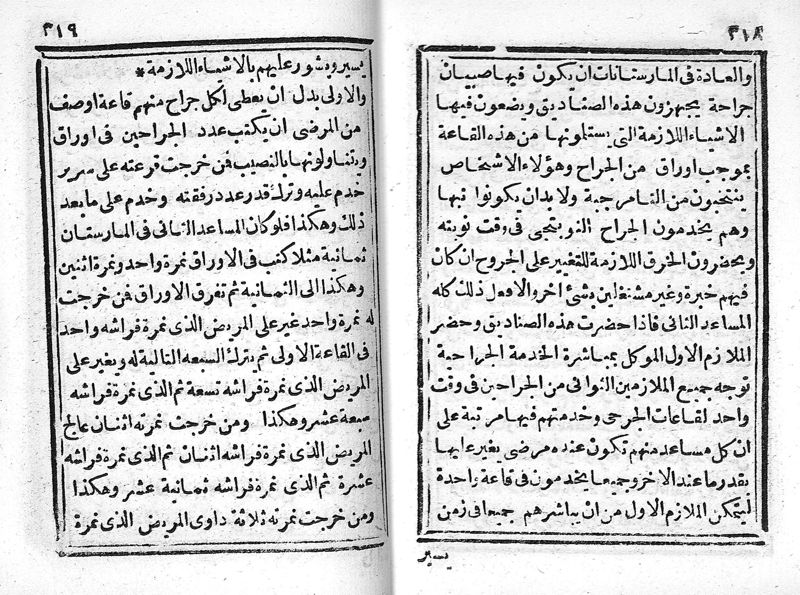 ٣١٨
والعادة فى المارستانات ان يكون فيها صبيان
جراحة يجهزون هذه الصناديق ويضعون فيها
الاشياء اللازمة التى يستلونها من هذه القاعة
بموجب اوراق من الجراح وهؤلاء الاشخاص
ينتخبون من التامرجية ولا بد ان يكونوا نبها
وهم يخدمون الجراح النوبتجى فى وقت نوبته
ويحضرون الخرق اللازمة للتغيير على الجروح ان كان
فيهم خبرة وغير مشتغلين بشئ اخر والا فعل ذلك كله
المساعد الثانى فاذا حضرت هذه الصناديق وحضر
الملازم الاول الموكل بمباشرة الخدمة الجراحية
توجه جميع الملازمين الثوانى من الجراحين فى وقت
واحد لقاعات الجرحى وخدمتهم فيها مرتبة على
ان كل مساعد منهم تكون عنده مرضى يغير عليها
بقدر ما عند الاخر وجميعا يخدمون فى قاعة واحدة
ليتمكن الملازم الاول من ان يباشرهم جميعا فى زمن
يسير
٣١٩
يسير ويشور عليهم بالاشياء اللازمة *
والاولى بدل ان يعطى لكل جراح منهم قاعة او صف
من المرضى ان يكتب عدد الجراحين فى اوراق
ويتناولونها بالنصيب فمن خرجت قرعته على سرير
خدم عليه وترك قدر عدد رفقته وخدم على ما بعد
ذلك وهكذا فلو كان المساعد الثانى فى المارستان
ثمانية مثلا كتب فى الاوراق نمرة واحد ونمرة اثنين
وهكذا الى الثمانية ثم تفرق الاوراق فمن خرجت
له نمرة واحد غير على المريض الذى نمرة فراشه واحد
فى القاعة الاولى ثم يترك السبعه التالية له ويغير على
المريض الذى نمرة فراشه تسعة ثم الذى نمرة فراشه
سبعة عشر وهكذا ومن خرجت نمرته اثنان عالج
المريض الذى نمرة فراشه اثنان ثم الذى نمرة فراشه
عشرة ثم الذى نمرة فراشه ثمانية عشر وهكذا
ومن خرجت نمرته ثلاثة داوى المريض الذى نمرة